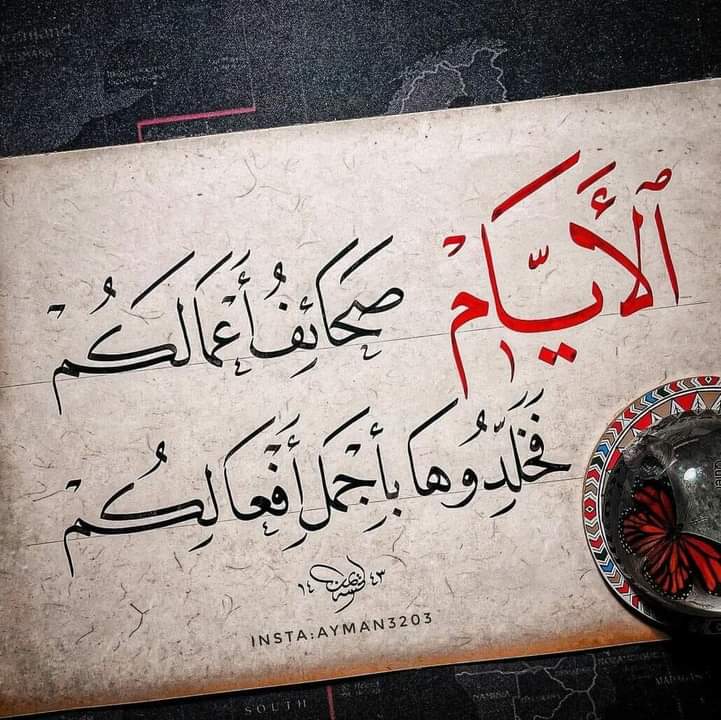 الأَيَّامْ صَحَائِفُ أَعْمَالَكُمْ
فَخَلِّدُوهَا بِأَجْمَلِ أَفْعَالِكُمْ
١٤٤٣
INSTA:AYMAN3203
SOUTH